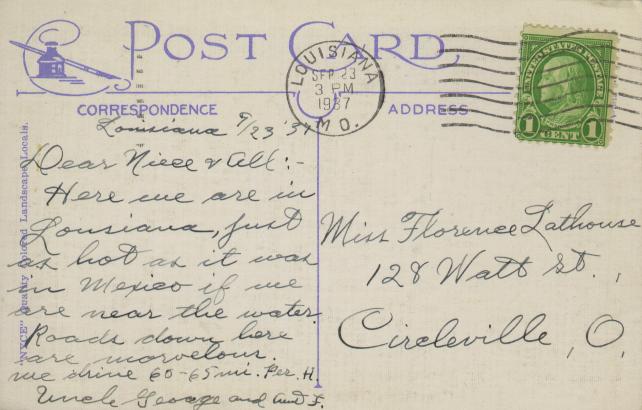 POST CARD
LOUISIANA
SEP 23
3 PM
1937
MO.
UNITED STATES POSTAGE
1 CENT 1
CORRESPONDENCE
ADDRESS
"NYCE" Quality Colored Landscape Locals.
Louisiana 9/23 '37
Dear Niece & All:-
Here we are in
Louisiana, just
as hot as it was
in Mexico if we
are near the water.
Roads down here
are marvelous.
we drive 60-65 mi. Per. H.
Uncle George and Aunt F.
Miss Florence Lathouse
128 Watt St.,
Circleville, O.